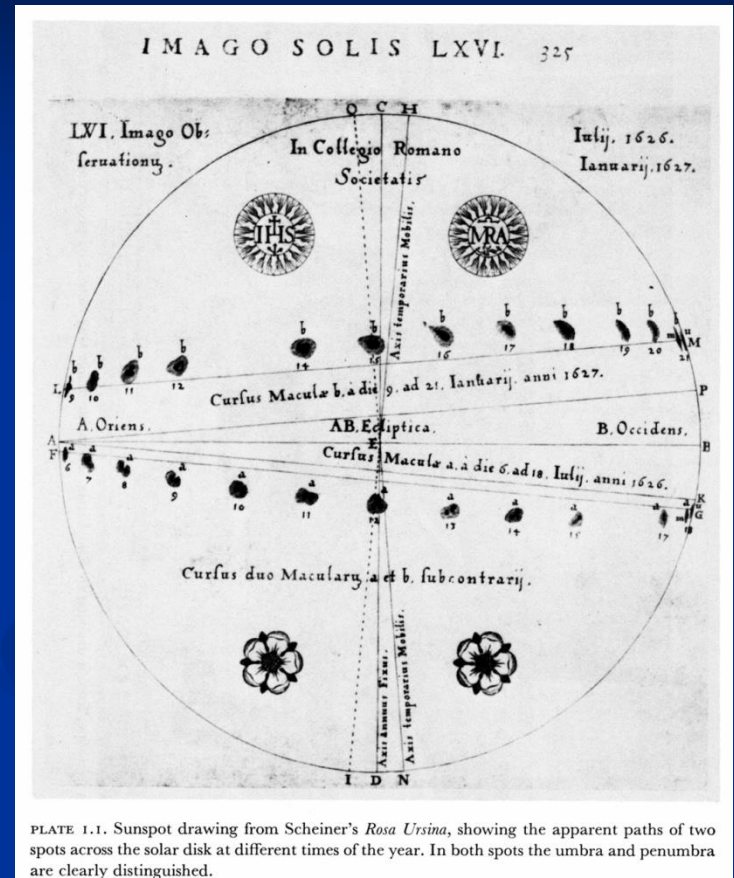 IMAGO SOLIS LXVI. 325
O C H
LVI. Imago Ob:
seruationũ.
In Collegio Romano
Societatis
Iulij. 1626.
Ianuarij. 1627.
IHS
MRA
Axis temporarius Mobilis.
b b b b b b b b b b b b
L 9 10 11 12 14 15 16 17 18 19 20 21 m u M
Cursus Maculæ b. a die 9. ad 21. Ianuarij. anni 1627.
P
A. Oriens. AB. Ecliptica. B. Occidens.
A E B
F
Cursus Maculæ a. à die 6. ad 18. Iulij. anni 1626.
K
a a a a a a a a a a a a
6 7 8 9 10 11 12 13 14 15 17 m 18 u G
Cursus duo Macularũ a et b. subcontrarij.
Axis Annuus Fixus.
Axis temporarius Mobilis.
I D N
PLATE 1.1. Sunspot drawing from Scheiner's Rosa Ursina, showing the apparent paths of two
spots across the solar disk at different times of the year. In both spots the umbra and penumbra
are clearly distinguished.